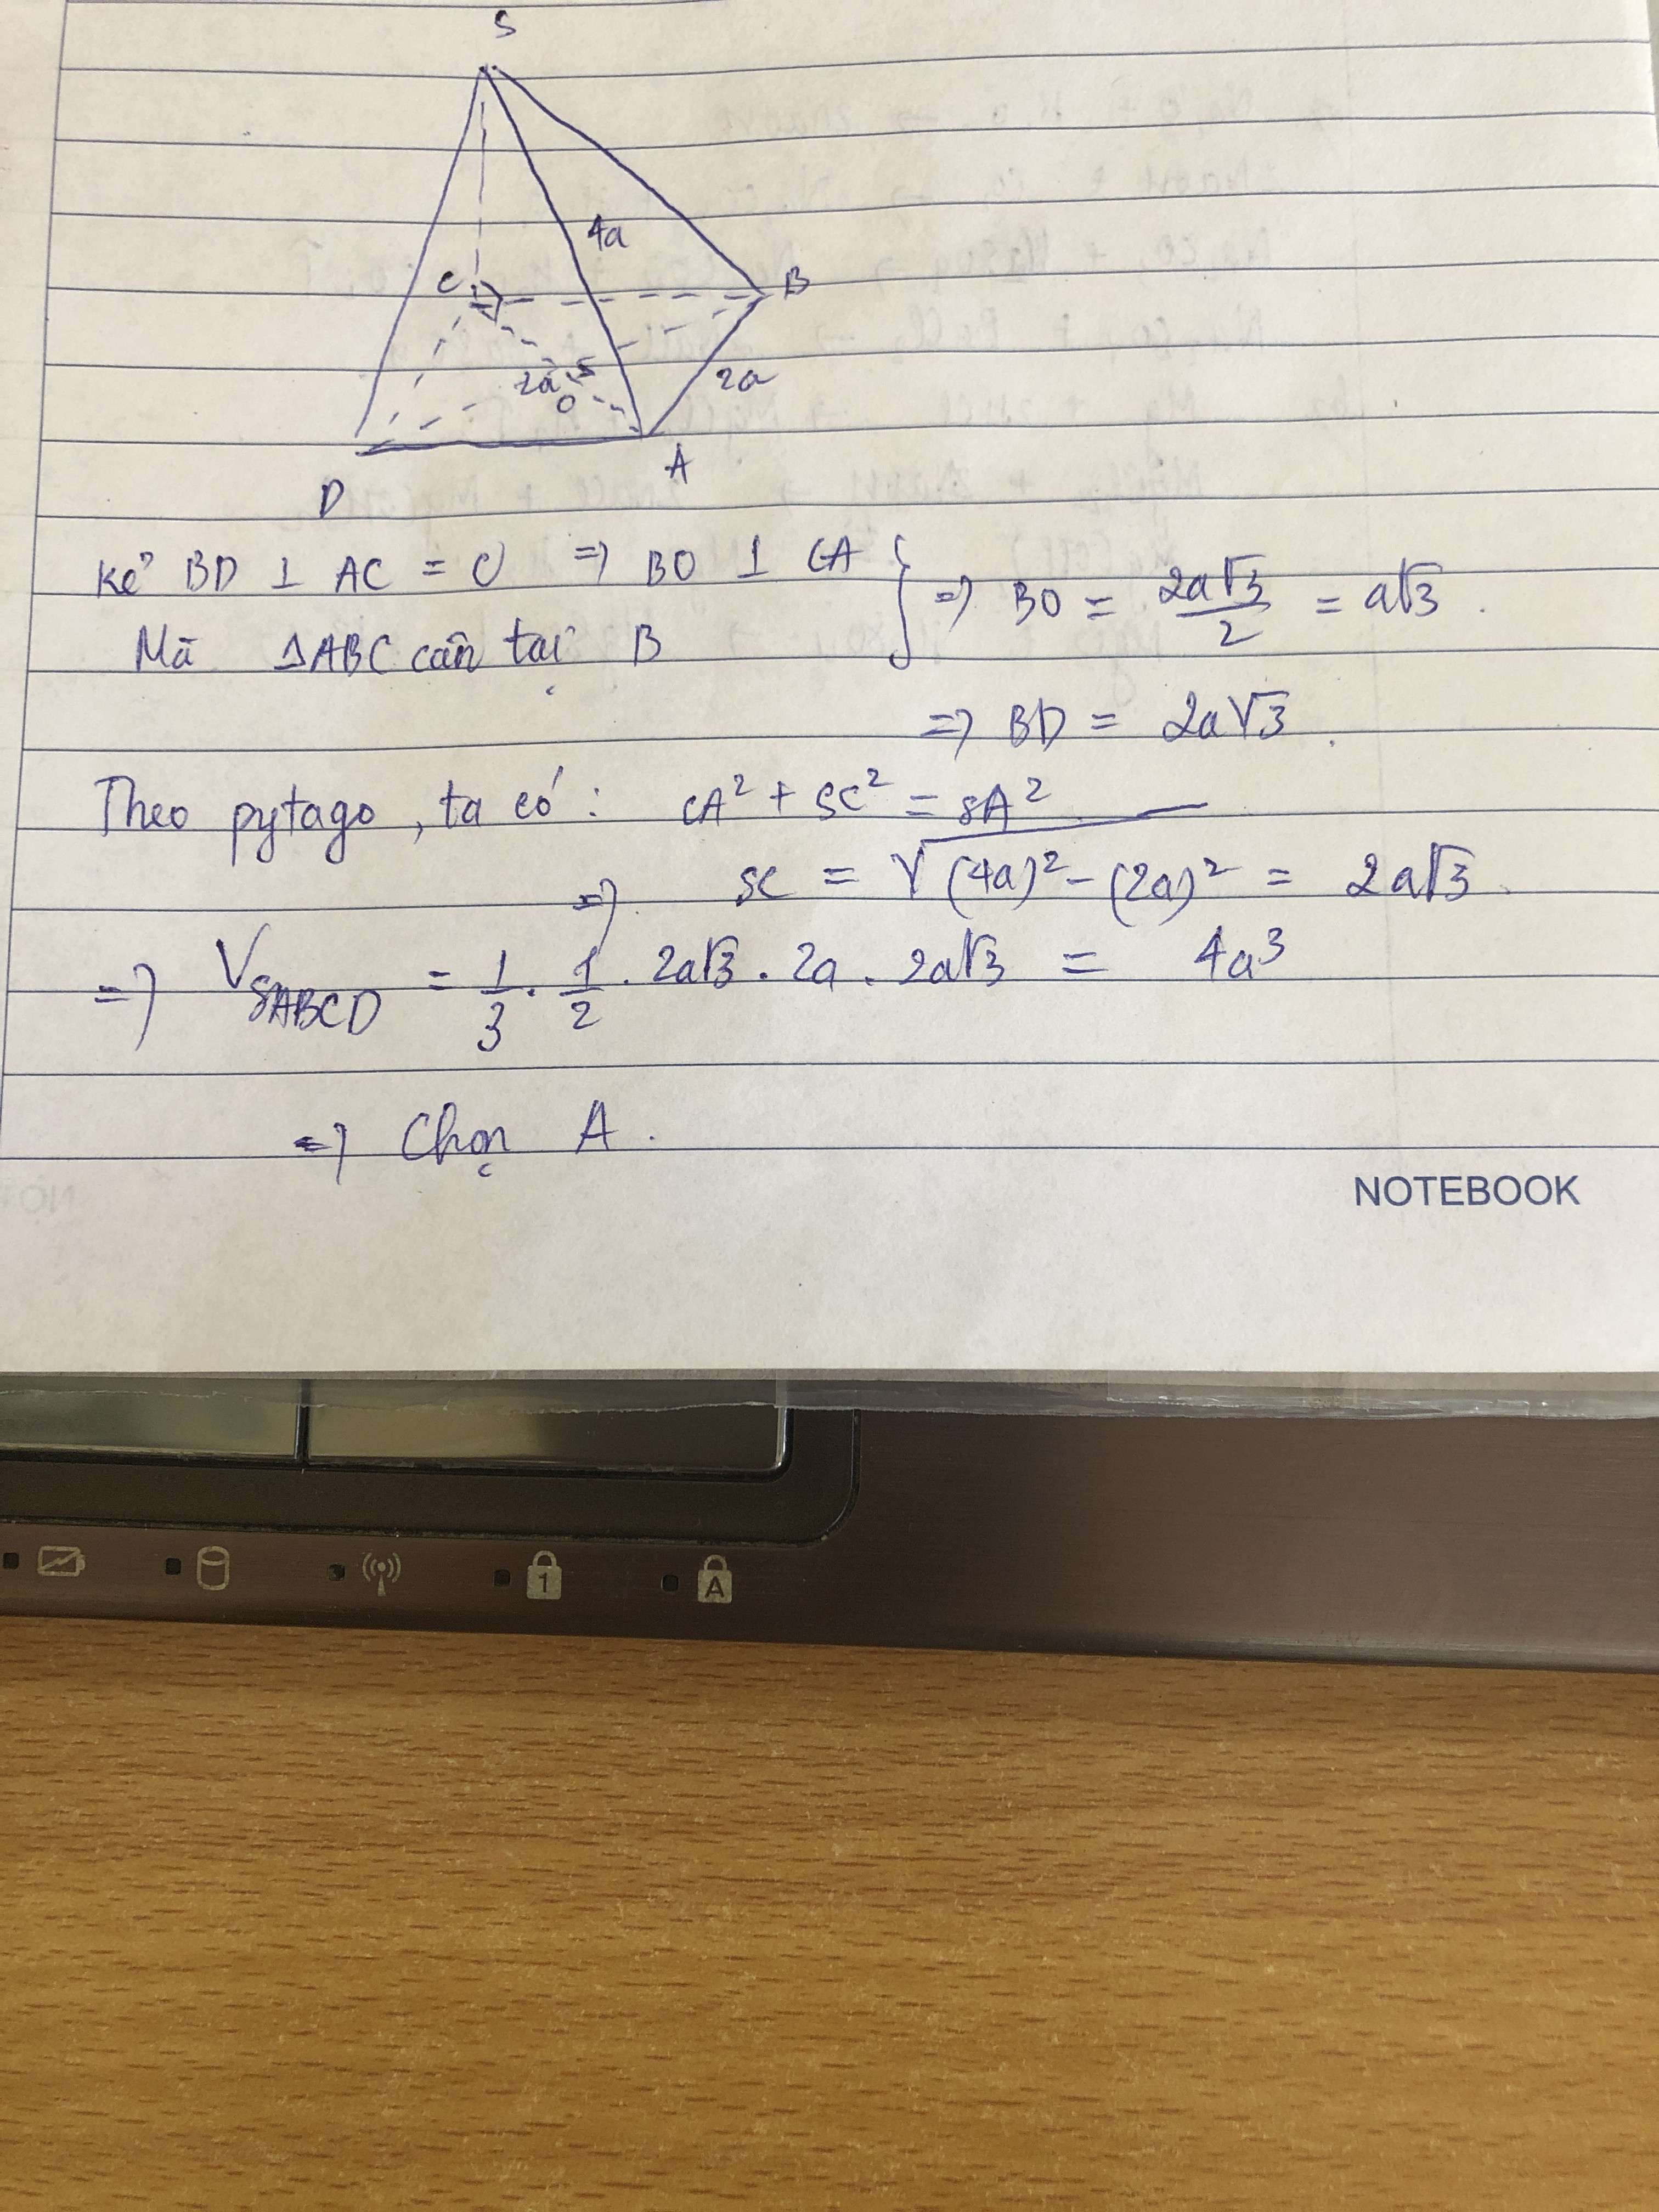 S
4a
C
B
2a
2a
O
A
D
Kẻ BD ⊥ AC = O ⇒ BO ⊥ CA
Mà ΔABC cân tại B
⇒ BO = 2a√3/2 = a√3.
⇒ BD = 2a√3.
Theo pytago, ta có: CA² + SC² = SA²
⇒ SC = √(4a)² - (2a)² = 2a√3.
⇒ V SABCD = 1/3 . 1/2 . 2a√3 . 2a . 2a√3 = 4a³
⇒ Chọn A.
NOTEBOOK
1
A